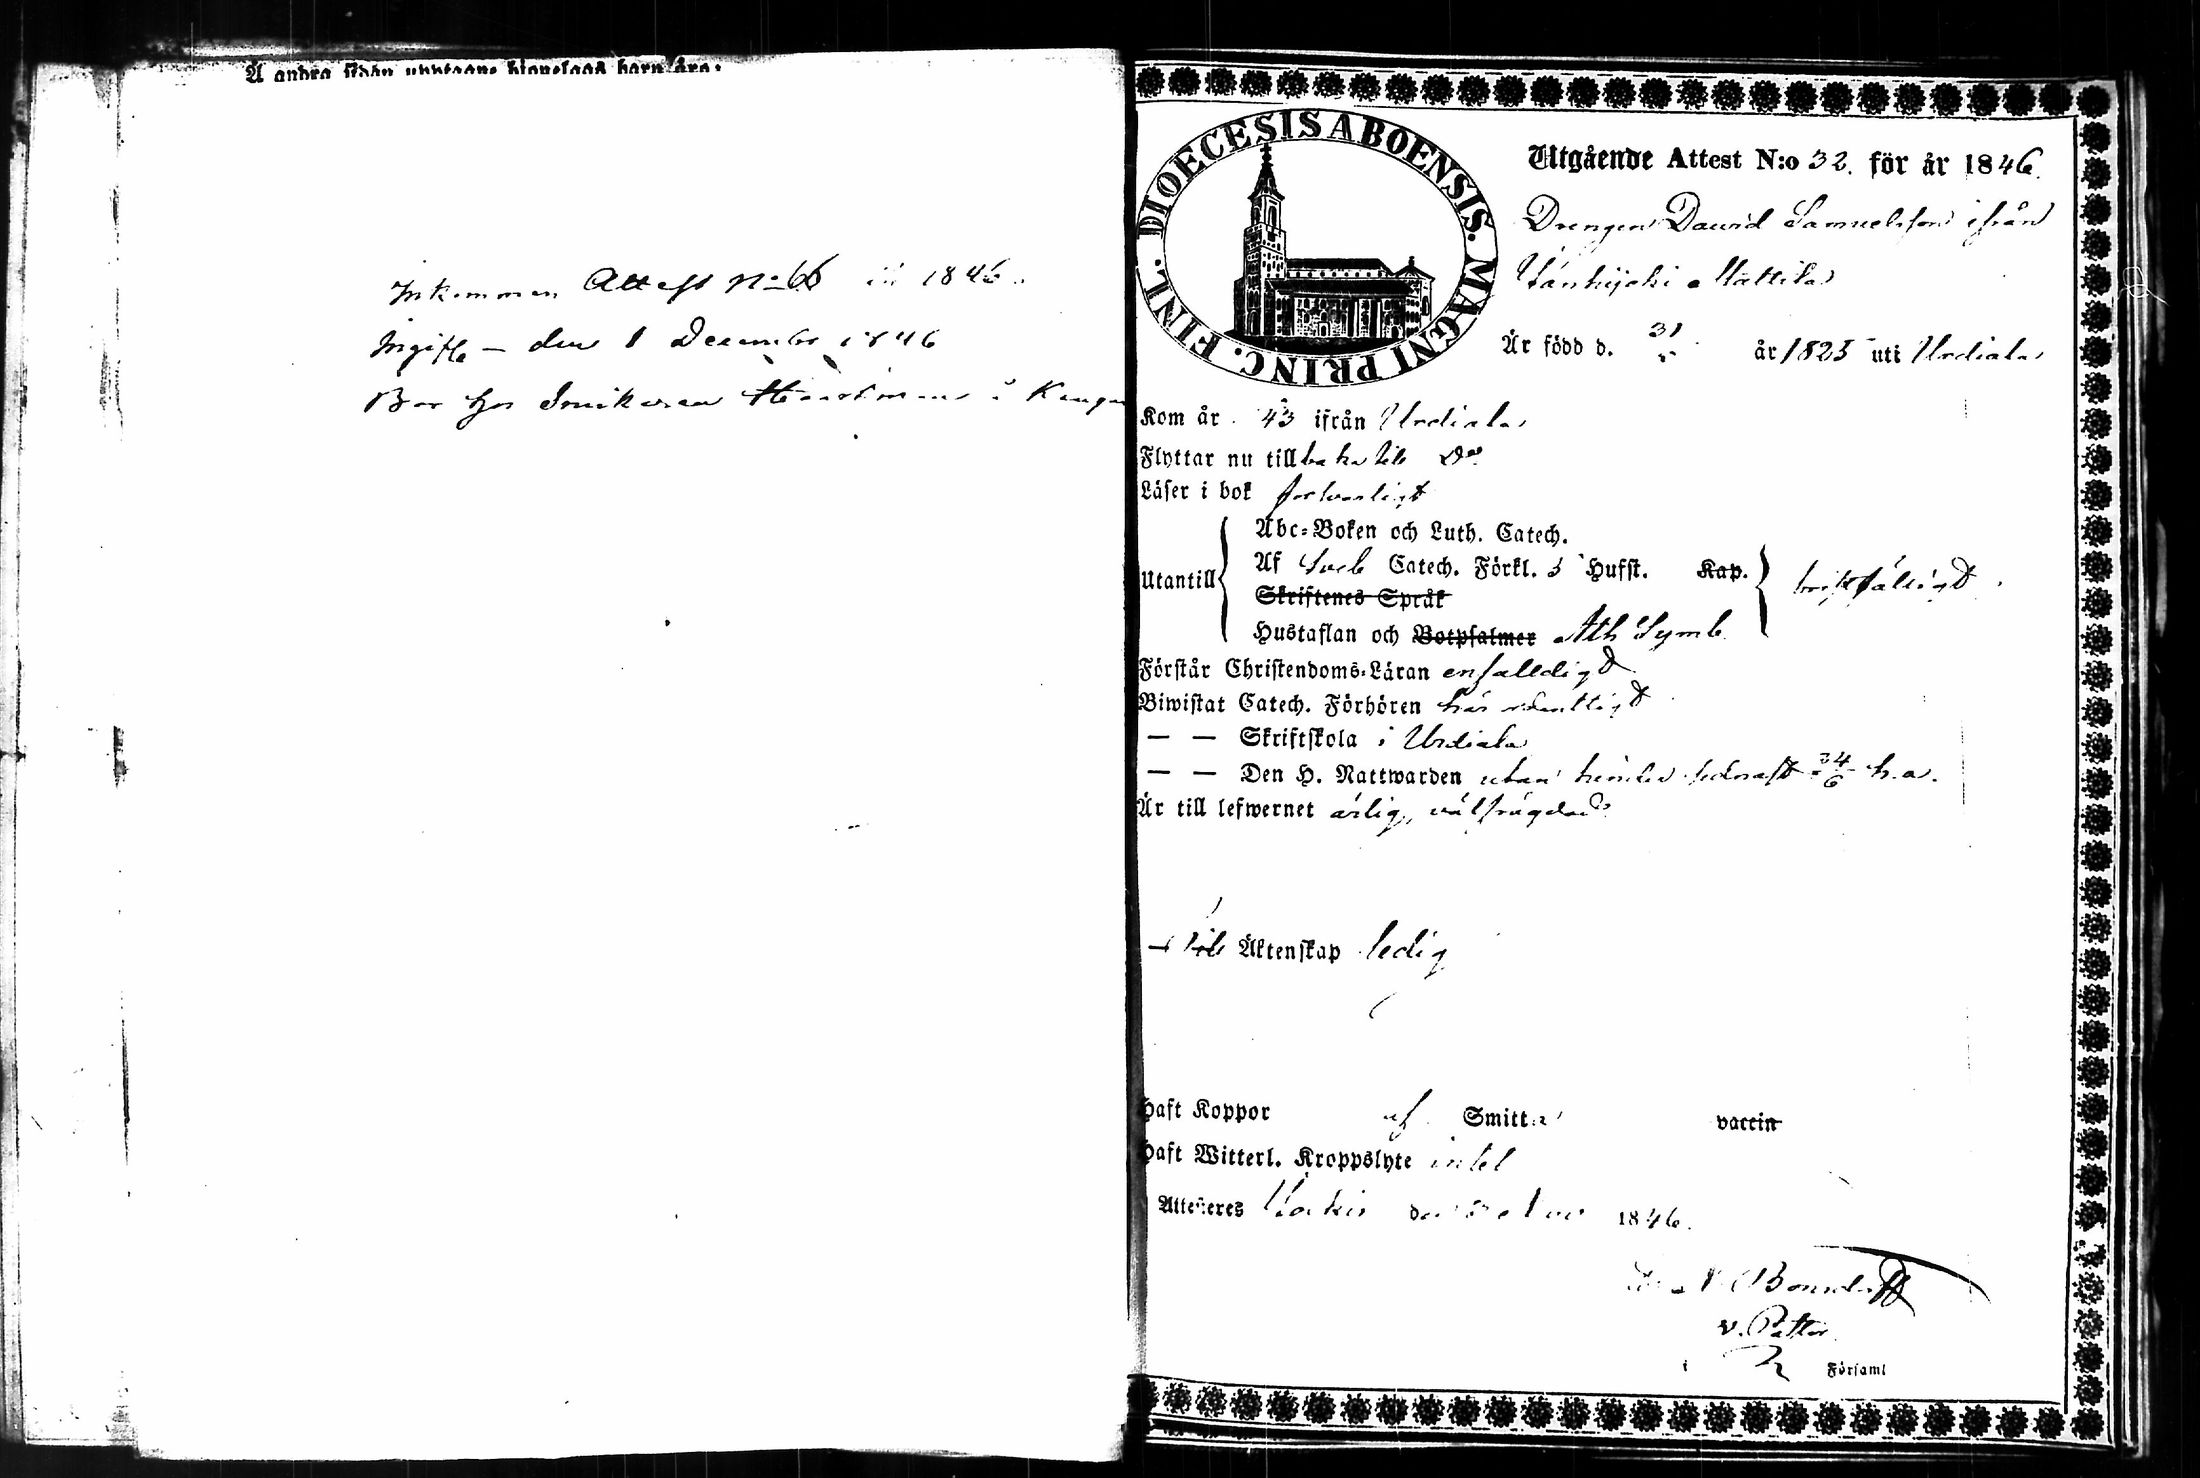 Å andra sidan upptagne hjonelags barn äro:
Inkommen Attest No 66 för 1846.
Ingift — den 1 December 1846
Bor hos Snickaren i
DIOECESIS ABOENSIS. MAGNI PRINC. FINL.
Utgående Attest N:o 32. för år 1846.
Drengen David Samuelsson ifrån
Mattila
Är född d. 31 år 1823 uti Urdiala
Kom år 43 ifrån Urdiala
Flyttar nu tillbaka till Do
Läser i bok försvarligt
Abc-Boken och Luth. Catech.
Utantill
Af Sveb Catech. Förkl. 3 Hufst. Kap.
Skriftenes Språk
Hustaflan och Botpsalmer Ath Symb.
Förstår Christendoms-Läran enfalldigt
Biwistat Catech. Förhören här ordentligt
— — Skriftskola i Urdiala
— — Den H. Nattwarden utan hinder sednast 24/6 h.a.
Är till lefwernet ärlig, välfrägdad
— till Äktenskap ledig
Haft Koppor af Smitta vaccin
Haft Witterl. Kroppslyte intet
Attesteres den Nov 1846.
Bonsdorff
v. Pastor
i Församl